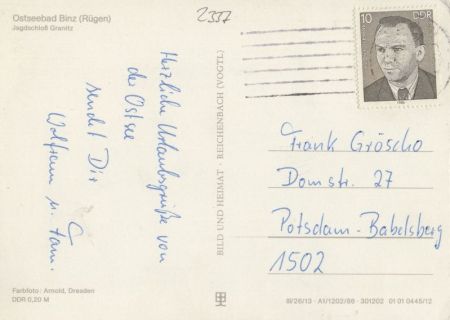 Ostseebad Binz (Rügen)
Jagdschloß Granitz
2337
10 DDR
1986
Herzliche Urlaubsgrüße von
der Ostsee
sendet Dir
Wolfram u. Fam.
BILD UND HEIMAT · REICHENBACH (VOGTL.)
Frank Gröscho
Domstr. 27
Potsdam-Babelsberg
1502
Farbfoto: Arnold, Dresden
DDR 0,20 M
III/26/13 · A1/1202/86 · 301202 01 01 0445/12